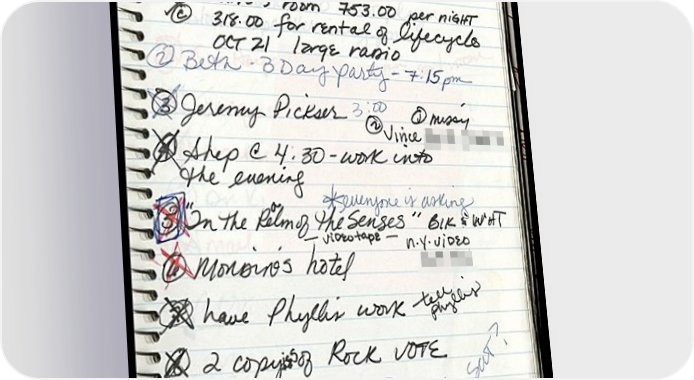 room 753.00 per night
C 318.00 for rental of lifecycle
OCT 21 large radio
2 Beth - 3 Day party - 7:15 pm
3 Jeremy Pickser 3:00
1 missy
2 Vince
Shep @ 4:30 - work into
the evening
*everyone is asking
"In the Relm of the Senses" BLK & WHT
- videotape - n.y. video
hotel
have Phyllis work tell
phyllis
2 copys of Rock VOTE